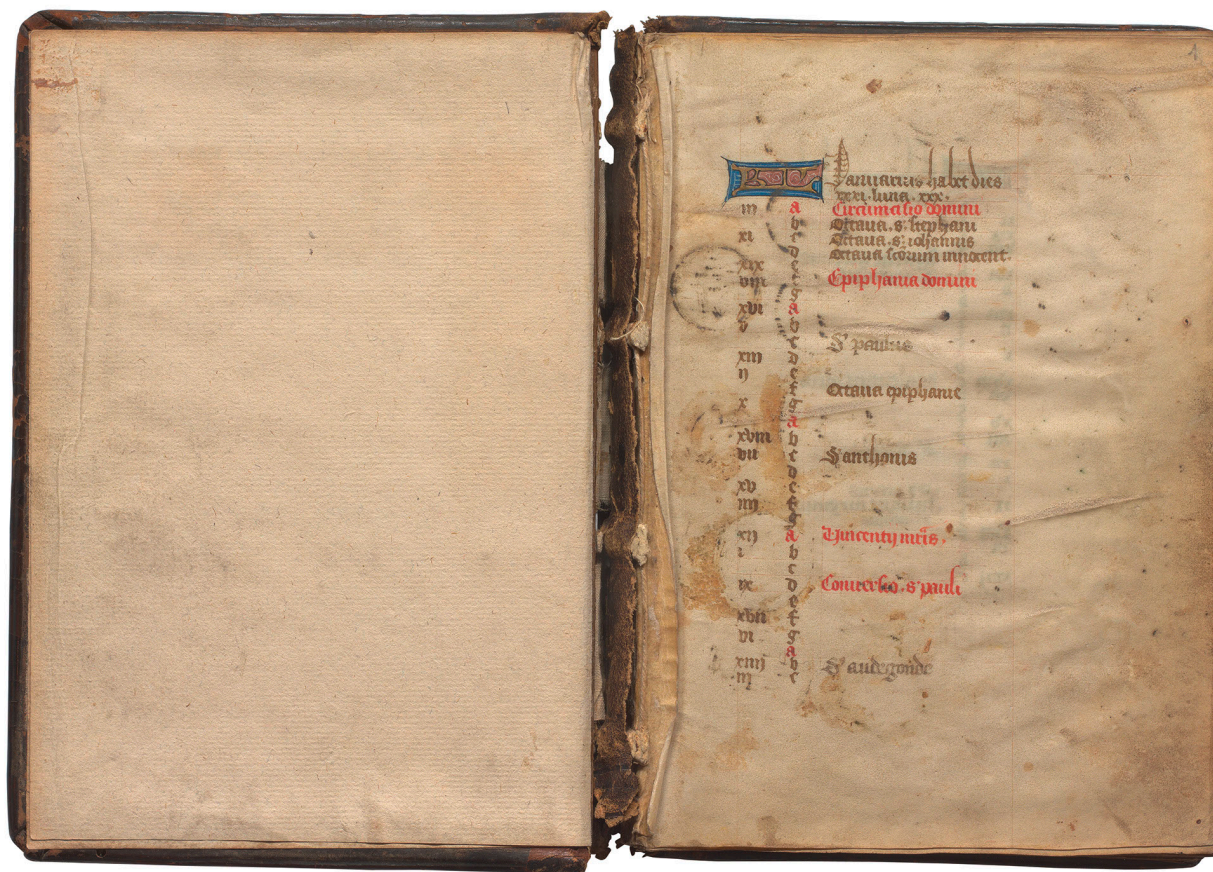 1
KL Januarius habet dies
xxxi. luna. xxx.
iii a Circumcisio domini
b Octaua. s. stephani
xi c Octaua. s. iohannis
d Octaua scorum innocent.
xix e
viii f Epiphania domini
g
xvi a
v b
c S paulus
xiii d
ii e
f Octaua epiphanie
x g
a
xviii b
vii c S anthonis
d
xv e
iiii f
g
xii a Vincentij mris.
i b
c
ix d Conuersio. s pauli
e
xvii f
vi g
a
xiiij b S audegonde
iij c